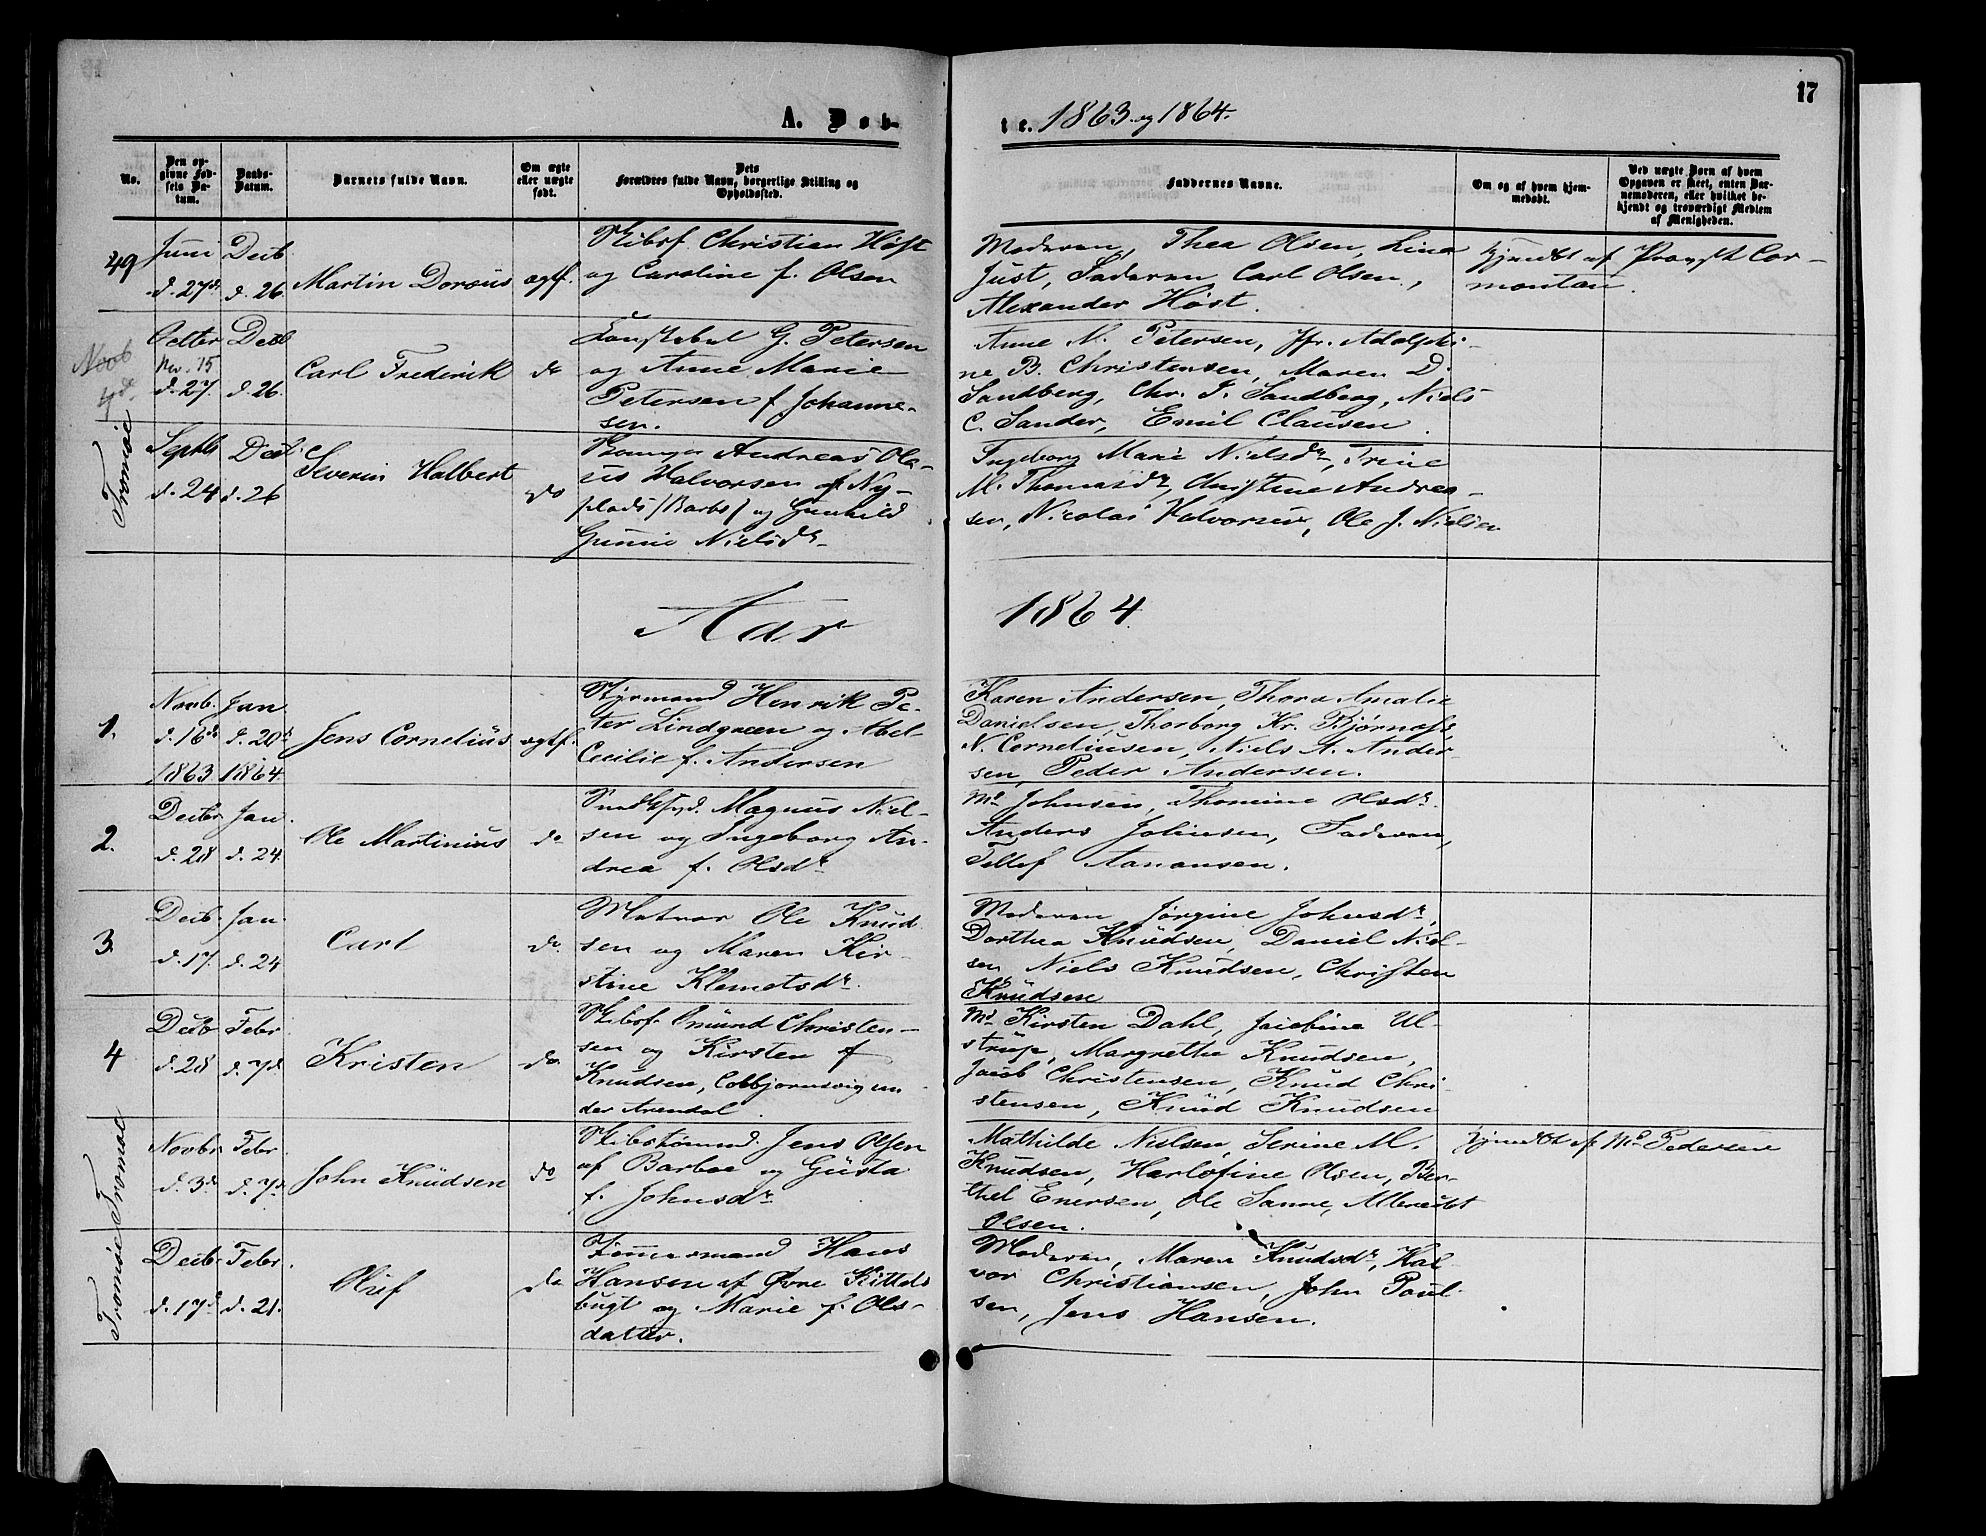 17
A. Døb-
te. 1863 og 1864.
No.
Den op-
givne Fød-
sels Da-
tum.
Daabs-
Datum.
Barnets fulde Navn.
Om ægte
eller uægte
født.
Dets
Forældres fulde Navn, borgerlige Stilling og
Opholdssted.
Faddernes Navne.
Om og af hvem hjem-
medøbt.
Ved uægte Børn af hvem
Opgaven er skeet, enten Bar-
nemoderen, eller hvilket be-
kjendt og troværdigt Medlem
af Menigheden.
49
Juni
d. 27d.
Decb.
d. 26.
Martin Doroüs
ægtf.
Skibsf. Christian Høst
og Caroline f. Olsen
Moderen, Thea Olsen, Lina
Just, Faderen, Carl Olsen,
Alexander Høst.
hjemdbt af Provst Cor-
montan.
Novb
4de
Octbr
Nov. 15
d. 27.
Decb
d. 26.
Carl Frederik
do
Konstabel G. Petersen
og Anne Marie
Petersen f Johanne-
sen.
Anne M. Petersen, Jfr. Adolphi-
ne B. Christensen, Maren D.
Sandberg, Chr. J. Sandberg, Niels
C. Sander, Emil Clausen.
Tromöe
Septb
d. 24
Decb.
d. 26
Severin Halbert
do
Andreas Ola-
us Halvorsen af Ny-
plads (Barbo) og Gunhild
Gurine Nielsdr.
Ingeborg Marie Nielsdr, Trine
M. Thomasdr, Christine Andrea-
sen, Nicolai Halvorsen, Ole J. Nielsen
Aar 1864.
1.
Novb.
d. 16de
1863
Jan
d. 20de
1864.
Jens Cornelius
ægtf.
Styrmand Henrik Pe-
ter Lindgreen og Abel
Cecilie f. Andersen
Karen Andersen, Thora Amalie
Danielsen, Thorborg Kr. Bjørnass,
N. Corneliusen, Niels A. Ander-
sen, Peder Andersen.
2.
Decbr
d. 28
Jan.
d. 24.
Ole Martinius
do
Magnus Niel-
sen og Ingeborg An-
drea f. Olsdr.
Md. Johnsen, Thomine Olsdr.
Anders Johnsen, Faderen,
Tellef Aanonsen.
3.
Decb.
d. 17.
Jan.
d. 24
Carl
do.
Matros Ole Knud-
sen og Maren Kir-
stine Klemetsdr.
Moderen, Jörgine Johnsdr,
Dorthea Knüdsen, Daniel Niel-
sen, Niels Knudsen, Christen
Knüdsen
4
Decb
d. 28
Febr
d. 7d.
Kristen
do.
Skibsf. Omund Christen-
sen og Kirsten f
Knudsen, Colbjørnsvig un-
der Arendal.
Md. Kirsten Dahl, Jacobine Ul-
strüp, Margrethe Knudsen,
Jacob Christensen, Knud Chri-
stensen, Knüd Knudsen
Tromöe
Novbr
d. 3de
Febr.
d. 7d.
John Knüdsen
do
Skibstømmd. Jens Olsen
af Barboe og Güsta
f. Johnsdr.
Mathilde Nielsen, Serine M.
Knudsen, Karlofine Olsen, Ber-
thel Enersen, Ole Sanne, Albrecht
Olsen.
hjemdbt af Md. Pedersen
Tromöe
Decb.
d. 17d
Febr.
d. 21.
Oluf
do
Tømmermand Hans
Hansen af Øvre Kittels
bugt og Marie f. Ols-
datter.
Moderen, Maren Knudsdr, Hal-
vor Christiansen, John Poul-
sen, Jens Hansen.